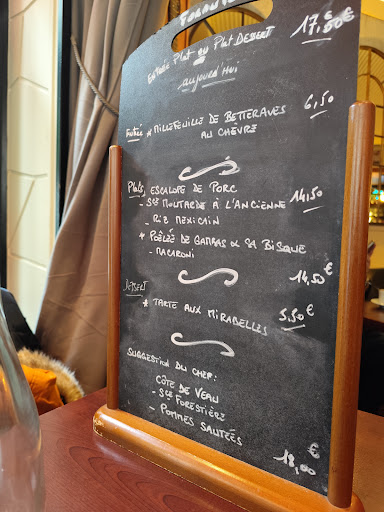 FORMULE
Entrée Plat ou Plat Dessert 17,50€
aujourd'hui
Entrée * Millefeuille de Betteraves 6,50
au chèvre
Plats, Escalope de Porc
- Sce Moutarde à l'ancienne 14,50
- Riz Mexicain
* Poêlée de Gambas & sa Bisque
- Macaroni 14,50€
Dessert
* Tarte aux Mirabelles 5,50€
Suggestion du chef:
Côte de Veau
- Sce Forestière
- Pommes Sautées
18,00€